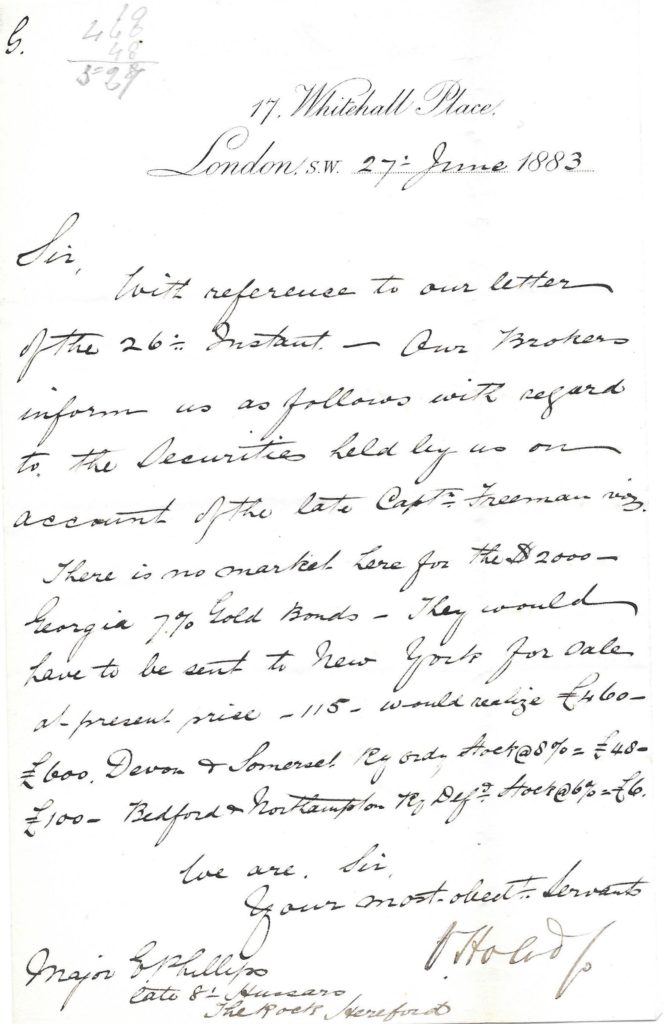 G.
468
48
17, Whitehall Place,
London, S.W. 27th June 1883
Sir,
With reference to our letter
of the 26th Instant. — Our Brokers
inform us as follows with regard
to. the Securities held by us on
account of the late Captn. Freeman viz.
There is no market here for the $2000 —
Georgia 7% Gold Bonds — They would
have to be sent to New York for sale
at present price — 115 — would realize £460 —
£600. Devon & Somerset Ry ordy Stock @ 8% = £48 —
£100 — Bedford & Northampton Ry Defd. Stock @ 6% = £6.
We are. Sir,
Your most obedt. Servants
Major E Phillips
late 8th Hussars
The Rock Hereford